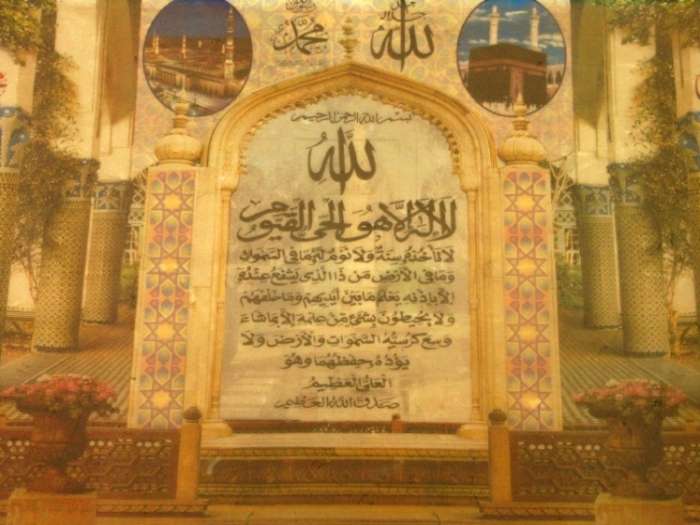 الله جل جلاله
محمد
بسم الله الرحمن الرحيم
الله
لا إله إلا هو الحي القيوم
لا تأخذه سنة ولا نوم له ما في السموات
وما في الأرض من ذا الذي يشفع عنده
إلا بإذنه يعلم ما بين أيديهم وما خلفهم
ولا يحيطون بشيء من علمه إلا بما شاء
وسع كرسيه السموات والأرض ولا
يؤده حفظهما وهو
العلي العظيم
صدق الله العظيم